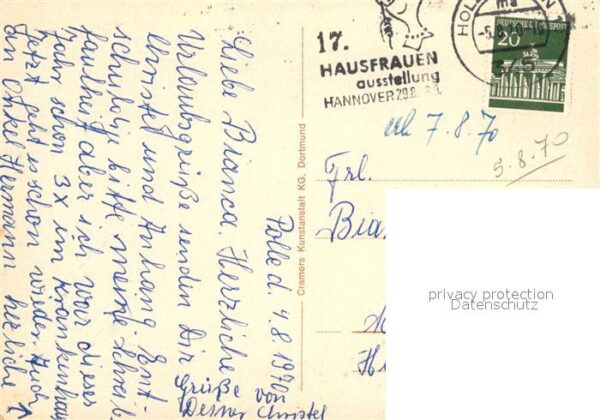 Polle d. 4.8.1970
Liebe Bianca. Herzliche
Urlaubsgrüße senden Dir
Christel und Anhang. Ent-
schuldige bitte meine Schreib-
faulheit aber ich war dieses
Jahr schon 3x im Krankenhaus
Jetzt geht es schon wieder. Auch
an Onkel Hermann herzliche
Grüße von
Deiner Christel
Cramers Kunstanstalt KG, Dortmund
17.
HAUSFRAUEN
ausstellung
HANNOVER 29.8.
DEUTSCHE BUNDESPOST
20
erh 7.8.70
5.8.70
Frl.
Bia
privacy protection
Datenschutz